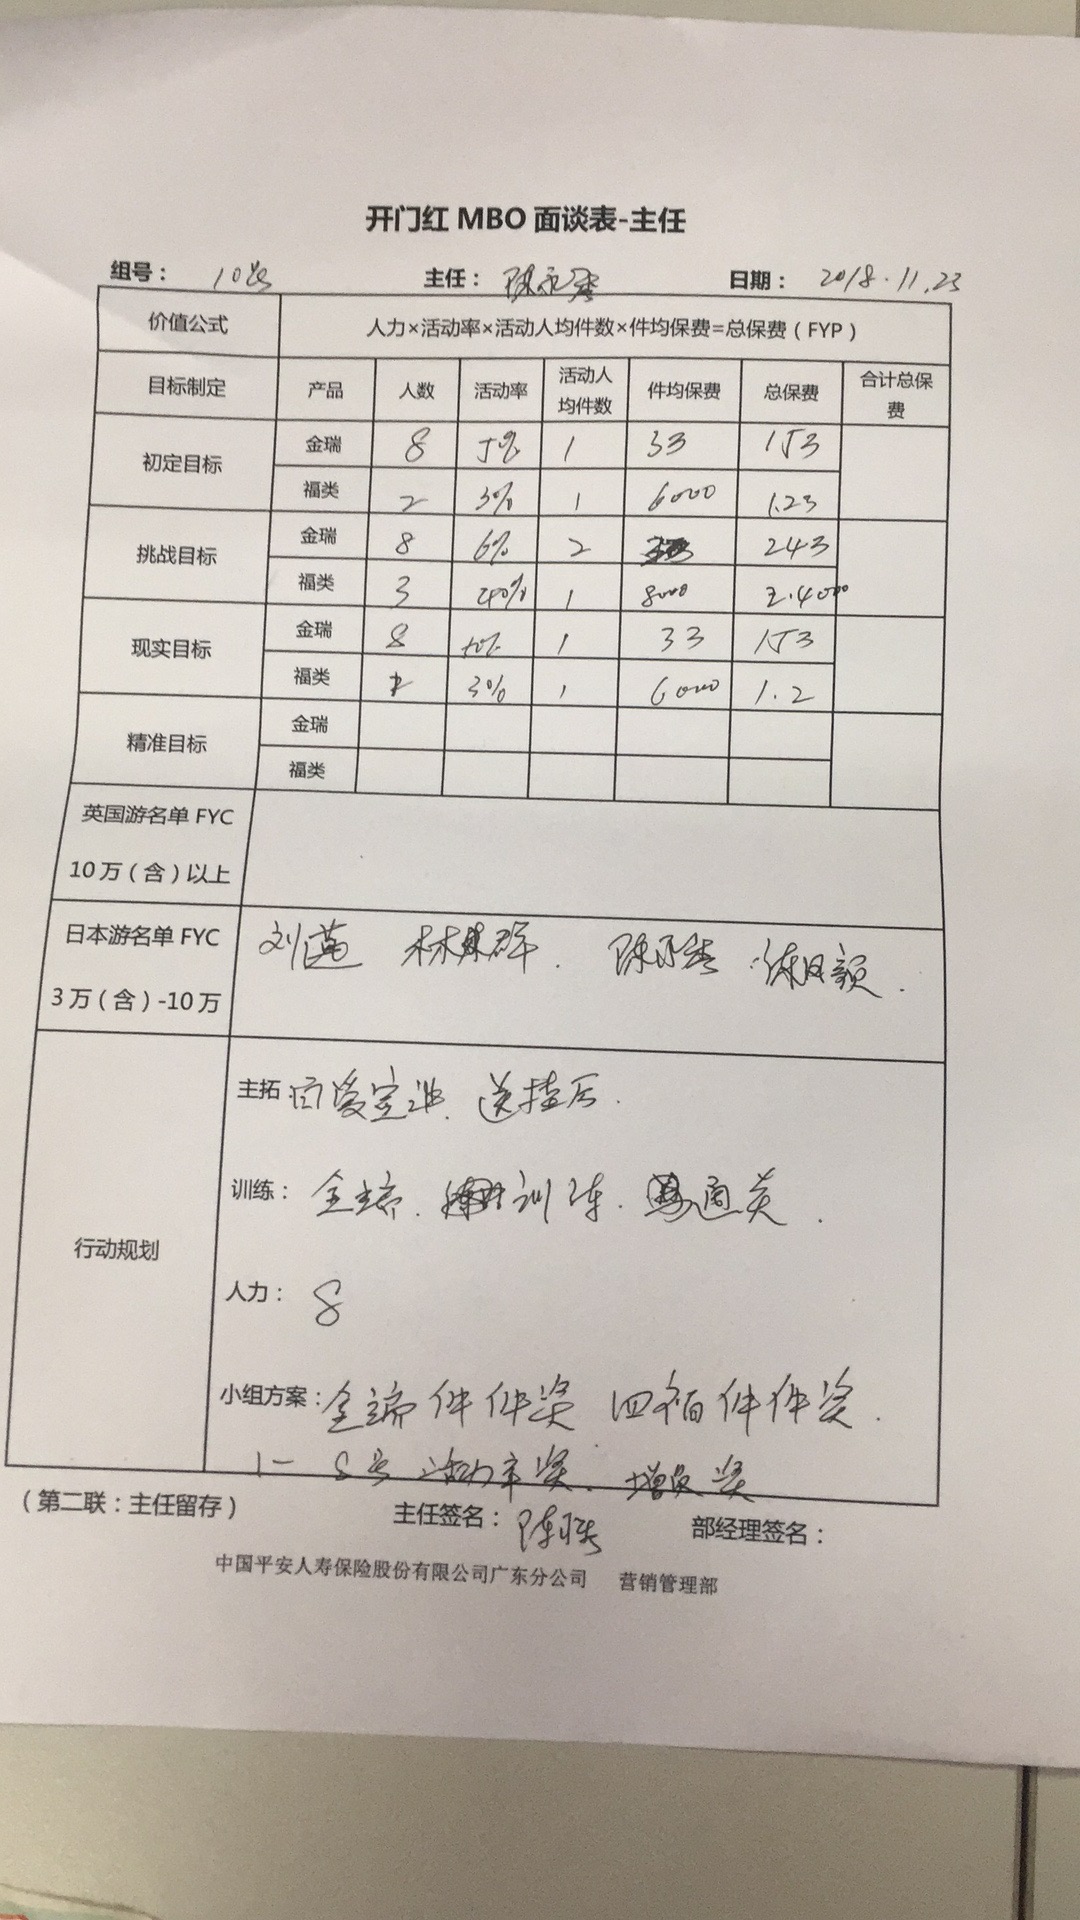 开门红 MBO 面谈表-主任
组号： 10 主任： 陈永秀 日期： 2018.11.23
价值公式 人力×活动率×活动人均件数×件均保费=总保费（FYP）
目标制定 产品 人数 活动率 活动人均件数 件均保费 总保费 合计总保费
初定目标 金瑞 8 5% 1 33 153
福类 2 3% 1 6000 1.23
挑战目标 金瑞 8 6% 2 243
福类 3 40% 1 8000 2.4000
现实目标 金瑞 8 1 33 153
福类 3% 1 6000 1.2
精准目标 金瑞
福类
英国游名单 FYC
10万（含）以上
日本游名单 FYC
3万（含）-10万
刘 林 群. 陈永秀 额.
行动规划
主拓 送挂历.
训练： 金瑞. 训练.
人力： 8
小组方案： 金瑞件件奖 件件奖.
1-8号活动率奖. 增员奖
（第二联：主任留存） 主任签名： 陈 部经理签名：
中国平安人寿保险股份有限公司广东分公司 营销管理部